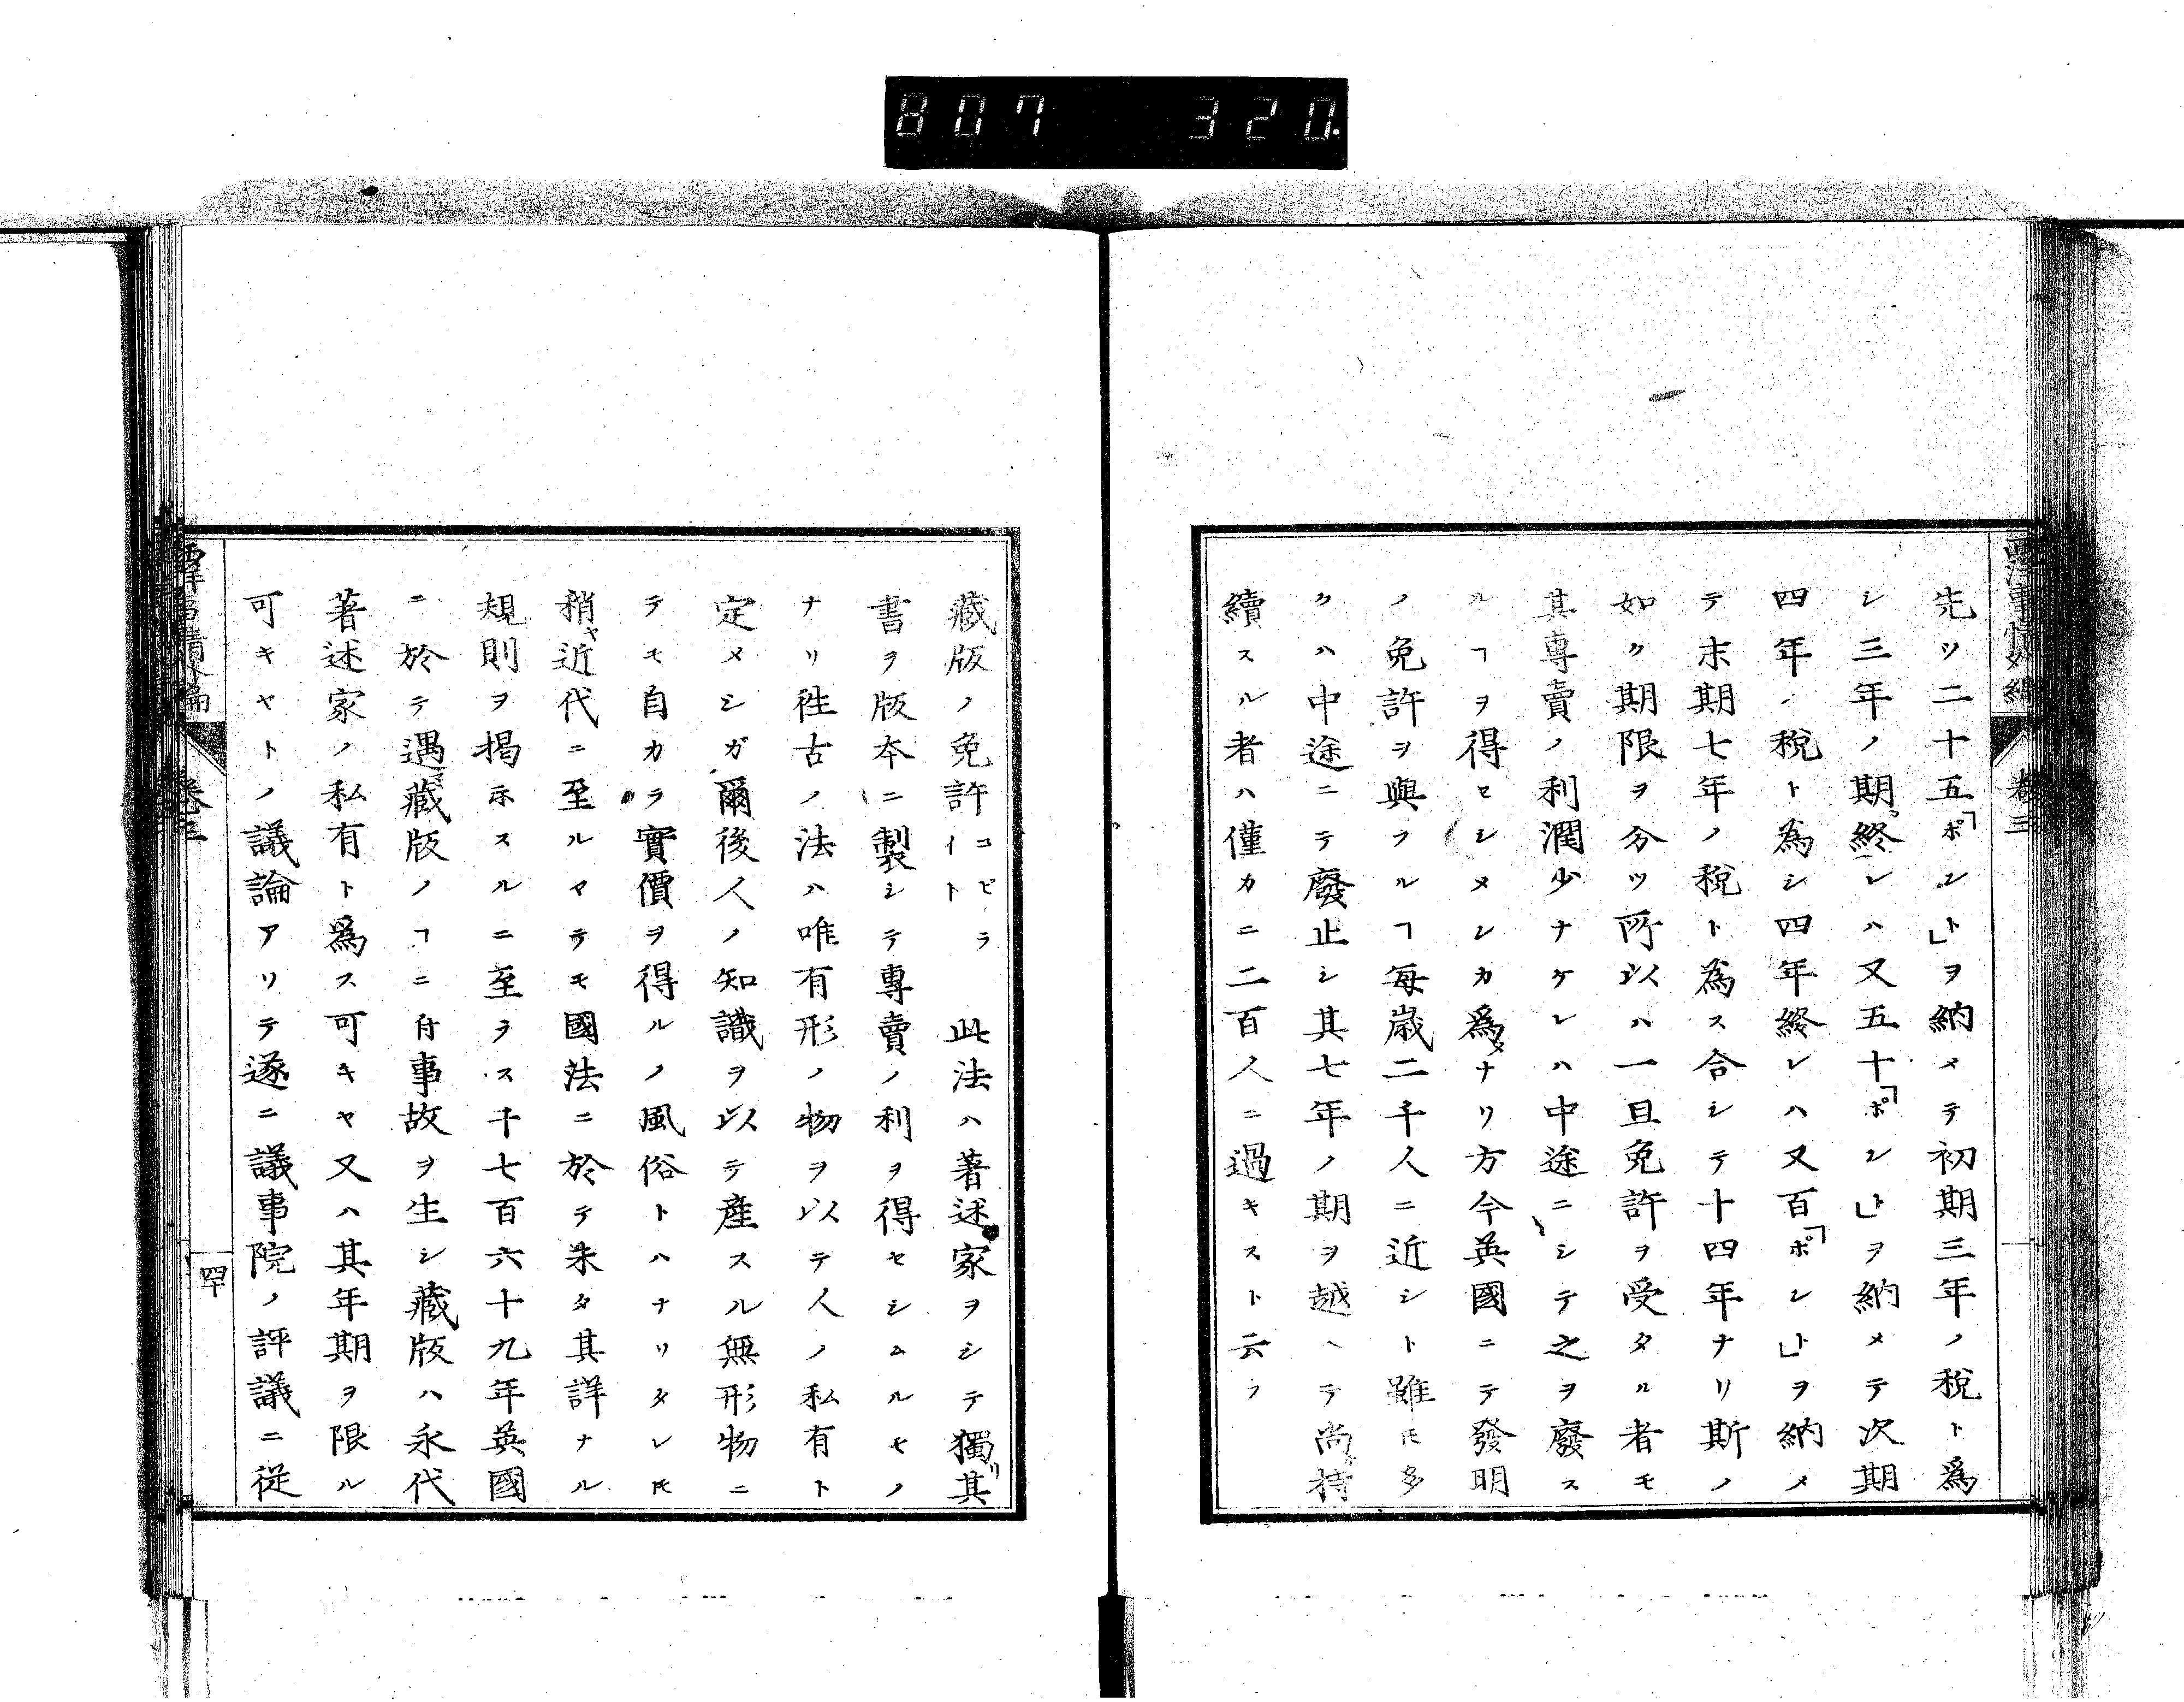 807 320.
西洋事情外編 卷三
先ツ二十五「ポンド」ヲ納メテ初期三年ノ税ト爲
シ三年ノ期終レハ又五十「ポンド」ヲ納メテ次期
四年ノ税ト為シ四年終レハ又百「ポンド」ヲ納メ
テ末期七年ノ税ト為ス合シテ十四年ナリ斯ノ
如ク期限ヲ分ツ所以ハ一旦免許ヲ受タル者モ
其專賣ノ利潤少ナケレハ中途ニシテ之ヲ廢ス
ルヿヲ得セシメンカ爲メナリ方今英國ニテ發明
ノ免許ヲ與フルヿ每歳二千人ニ近シト雖𪜈多
クハ中途ニテ廢止シ其七年ノ期ヲ越ヘテ尚持
續スル者ハ僅カニ二百人ニ過キスト云フ
藏版ノ免許コピライト 此法ハ著述家ヲシテ獨リ其
書ヲ版本ニ製シテ專賣ノ利ヲ得セシムルモノ
ナリ徃古ノ法ハ唯有形ノ物ヲ以テ人ノ私有ト
定メシガ爾後人ノ知識ヲ以テ產スル無形物ニ
テモ自カラ實價ヲ得ルノ風俗トハナリタレ𪜈
稍ヤ近代ニ至ルマテモ國法ニ於テ未タ其詳ナル
規則ヲ掲示スルニ至ラス千七百六十九年英國
ニ於テ遇マ藏版ノヿニ付事故ヲ生シ藏版ハ永代
著述家ノ私有ト爲ス可キヤ又ハ其年期ヲ限ル
可キヤトノ議論アリテ遂ニ議事院ノ評議ニ從
西洋事情外編 卷三 四十